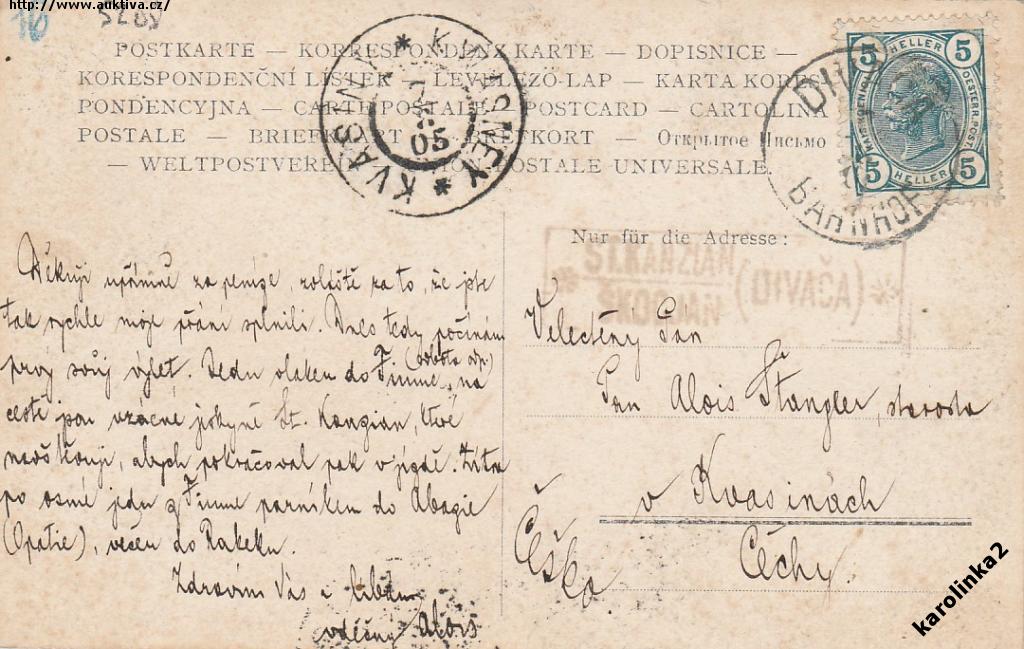 http://www.auktiva.cz/
16
POSTKARTE — KORRESPONDENZ KARTE — DOPISNICE —
KORESPONDENČNÍ LÍSTEK — LEVELEZŐ-LAP — KARTA KORES-
PONDENCYJNA — CARTE POSTALE — POSTCARD — CARTOLINA
POSTALE — BRIEFKORT — BREFKORT — Открытое Письмо
— WELTPOSTVEREIN — UNION POSTALE UNIVERSALE.
* KVASNEY * KVASINY
05
5 HELLER 5
5 HELLER 5
BAHNHOF
Nur für die Adresse:
* ST.KANZIAN (DIVAČA) *
ŠKOCJAN
Děkuji upřímně za peníze, zvláště za to, že jste
tak rychle moje přání splnili. Dnes tedy počínám
prvý svůj výlet. Jedu vlakem do Fiume, (sobota odp.) na
cestě jsou vzácné jeskyně St. Kanzian, které
navštěvuji, abych pokračoval pak v jízdě. Zítra
po osmé jedu z Fiume parníkem do Abazie
(Opatie), večer do Rakeku.
Zdravím Vás i líbám
vděčný Alois
Velectěný Pan
Pan Alois Stangler, starosta
v Kvasinách
Čechy.
Česko
karolinka2